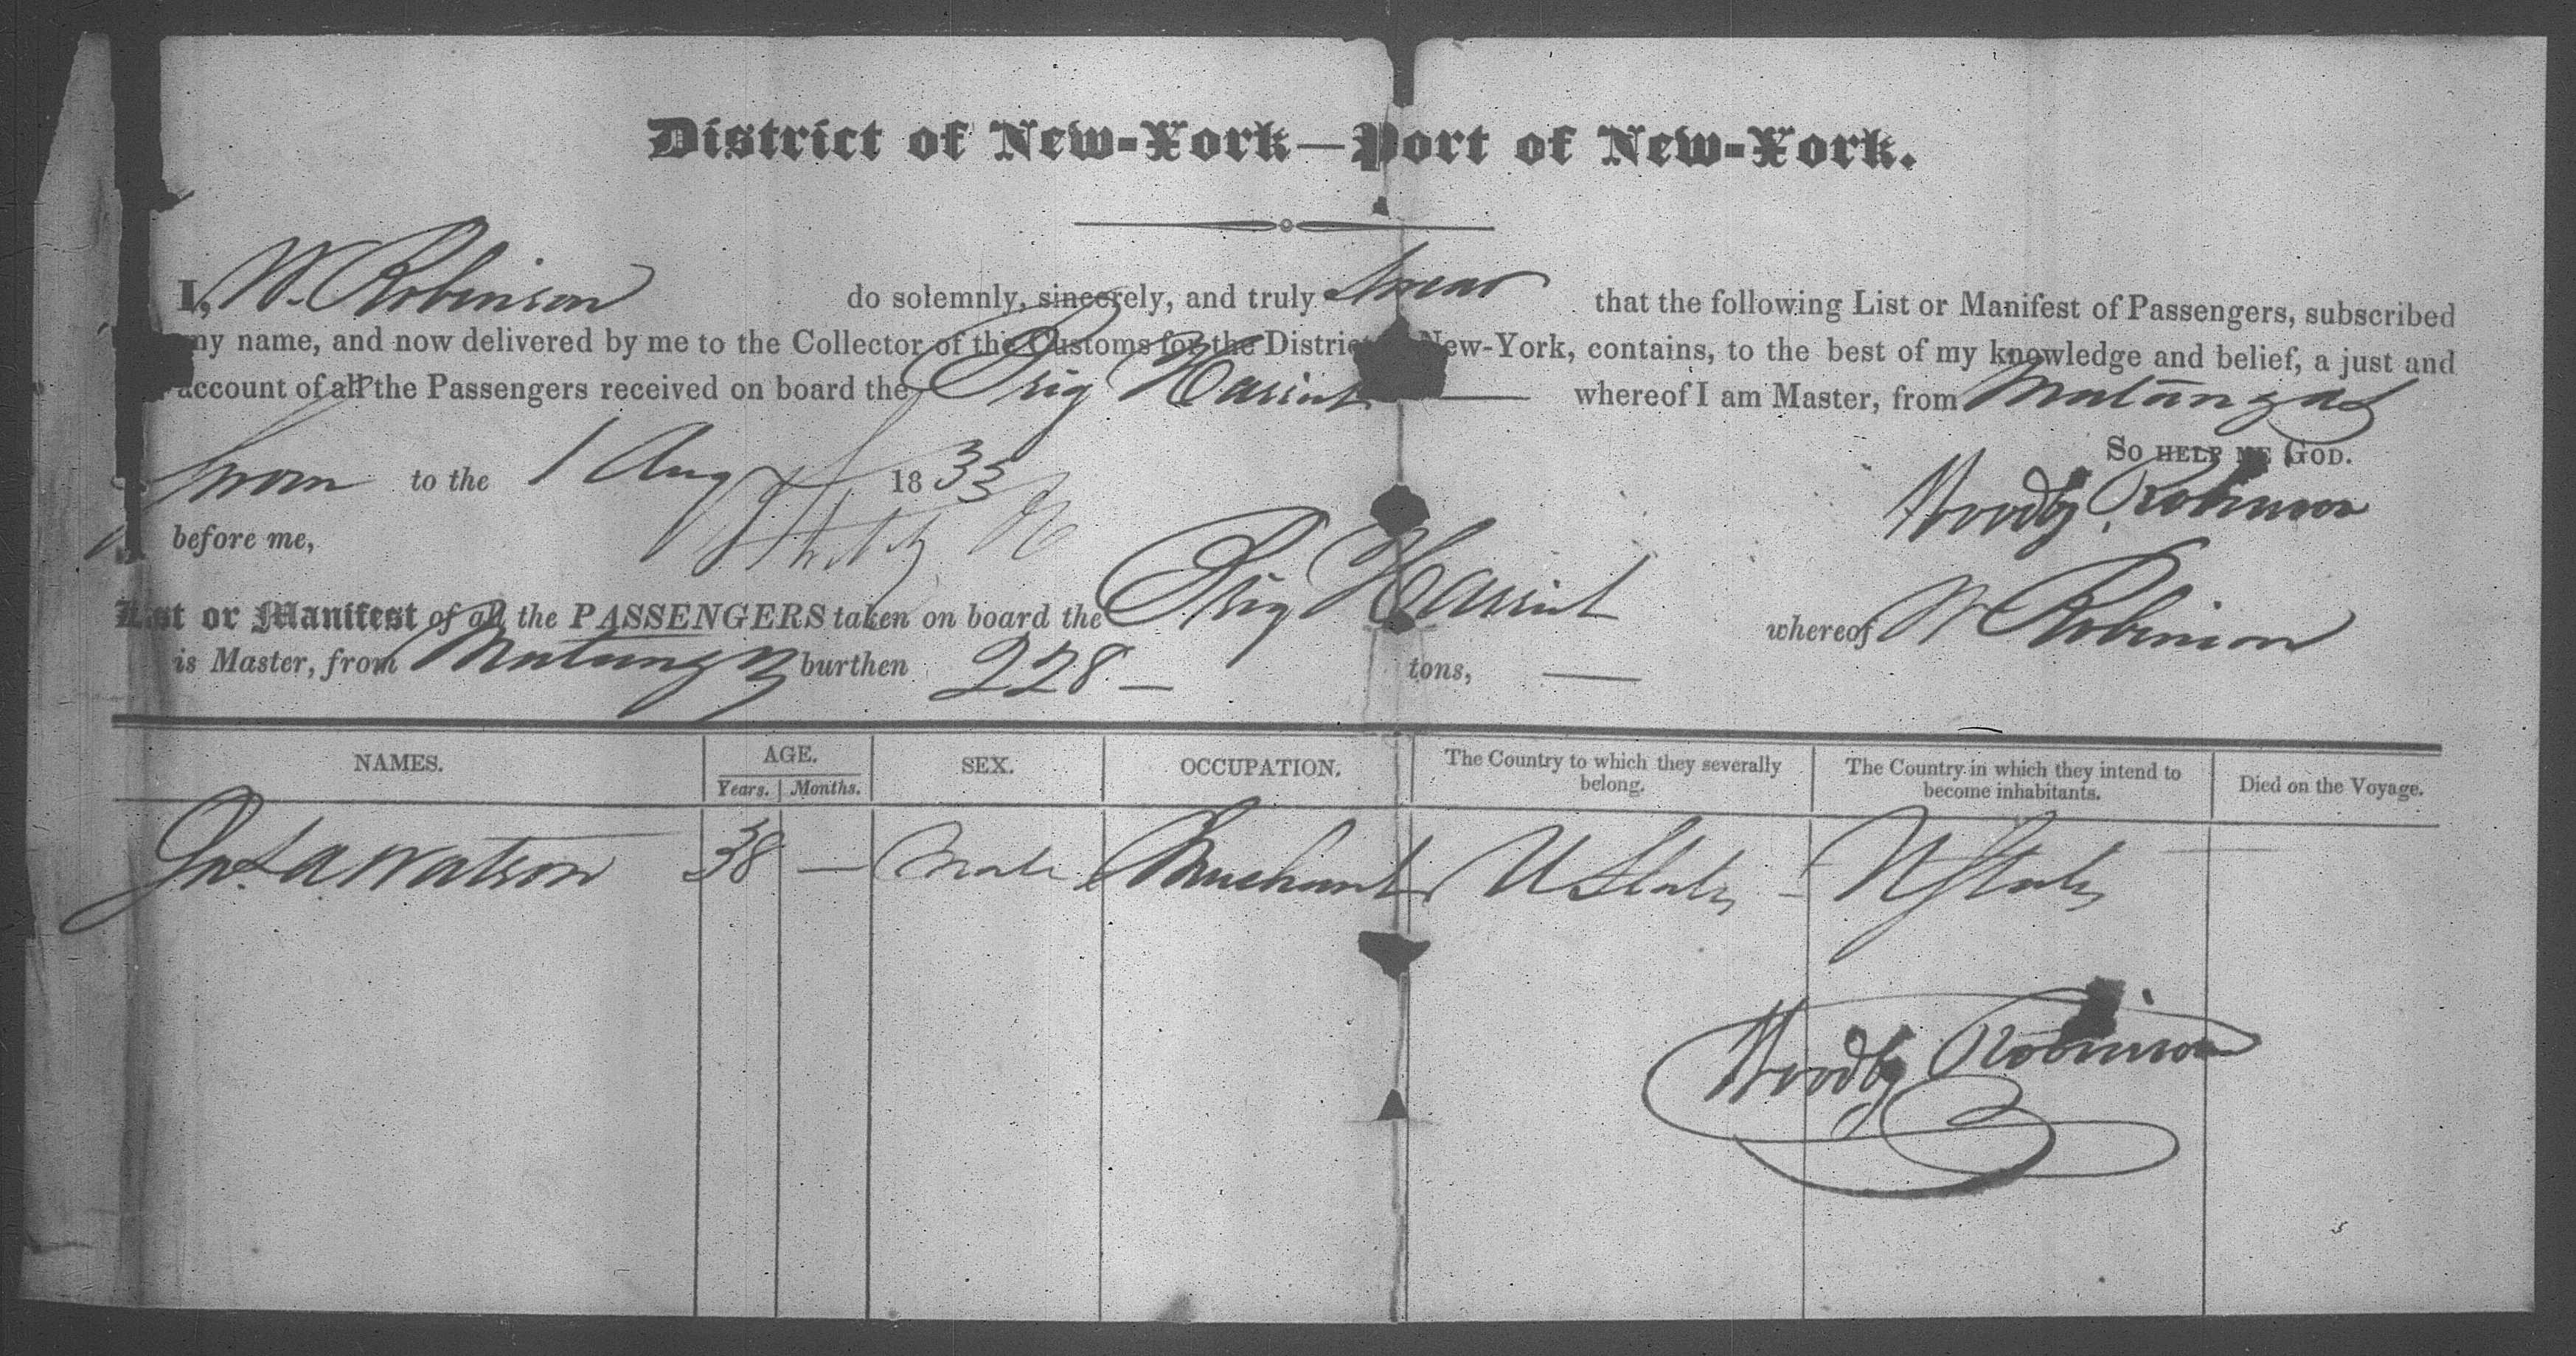 District of New-York—Port of New-York.
I, W. Robinson do solemnly, sincerely, and truly swear that the following List or Manifest of Passengers, subscribed
my name, and now delivered by me to the Collector of the Customs for the District New-York, contains, to the best of my knowledge and belief, a just and
account of all the Passengers received on board the Brig Harriet whereof I am Master, from Matanzas
So help me God.
Sworn to the 1 Aug 1833
Woodby Robinson
before me,
List or Manifest of all the PASSENGERS taken on board the Brig Harriet whereof W Robinson
is Master, from Matanzas burthen 228 — tons, —
NAMES. AGE. SEX. OCCUPATION. The Country to which they severally belong. The Country in which they intend to become inhabitants. Died on the Voyage.
Years. Months.
A Watson 38 — Male Merchant U States - U States
Woodby Robinson